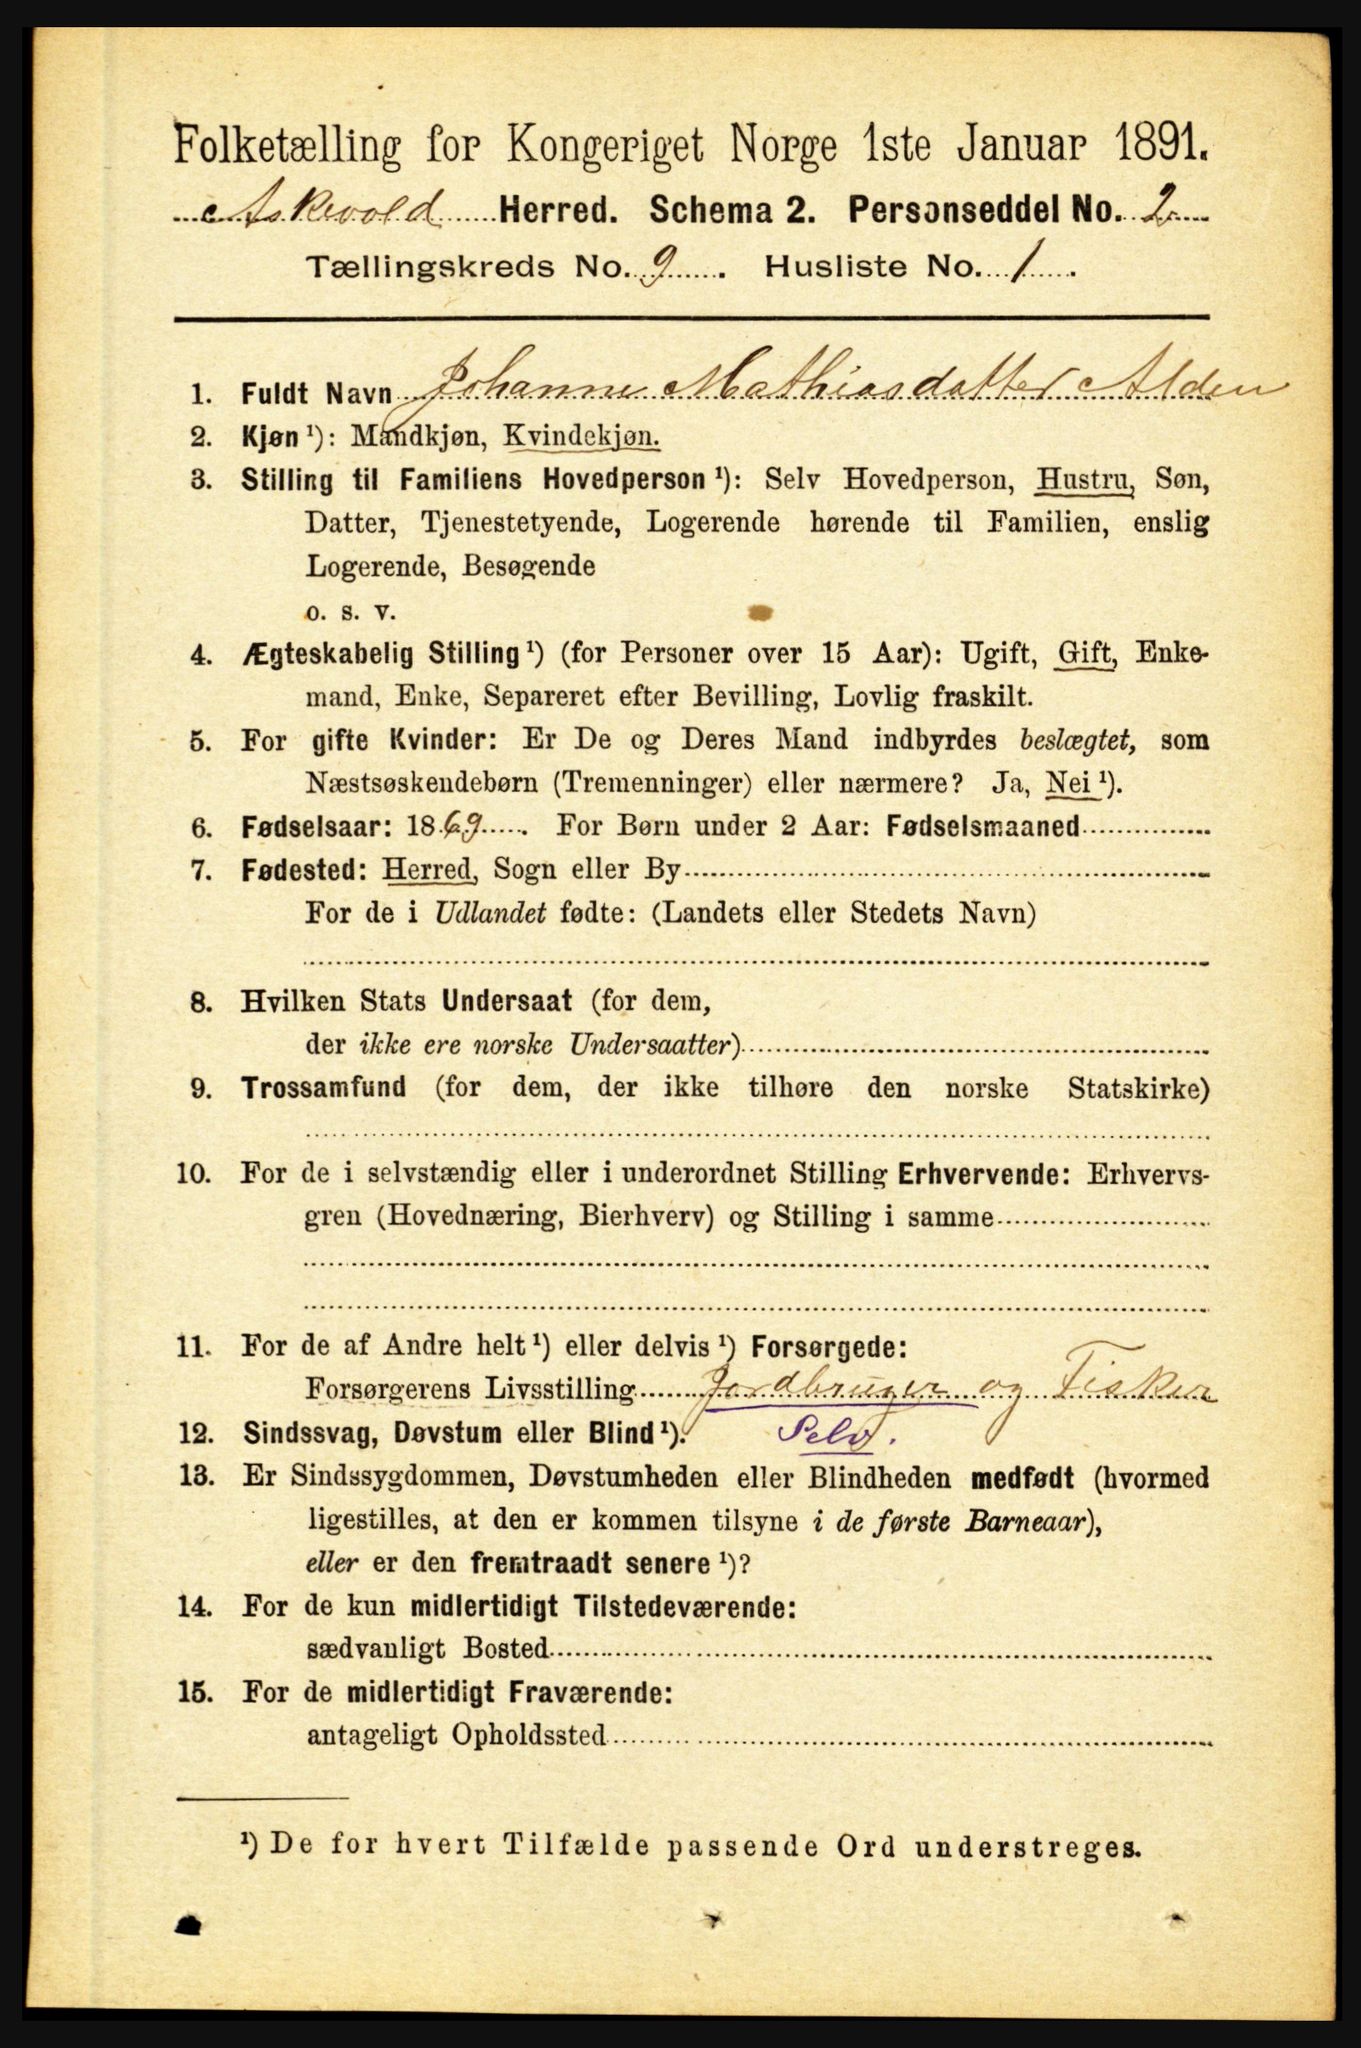 Folketælling for Kongeriget Norge 1ste Januar 1891.
Askevold Herred. Schema 2. Personseddel No. 2
Tællingskreds No. 9. Husliste No. 1.
1. Fuldt Navn Johanne Mathiasdatter Alden
2. Kjøn ¹): Mandkjøn, Kvindekjøn.
3. Stilling til Familiens Hovedperson ¹): Selv Hovedperson, Hustru, Søn,
Datter, Tjenestetyende, Logerende hørende til Familien, enslig
Logerende, Besøgende
o. s. v.
4. Ægteskabelig Stilling ¹) (for Personer over 15 Aar): Ugift, Gift, Enke-
mand, Enke, Separeret efter Bevilling, Lovlig fraskilt.
5. For gifte Kvinder: Er De og Deres Mand indbyrdes beslægtet, som
Næstsøskendebørn (Tremenninger) eller nærmere? Ja, Nei ¹).
6. Fødselsaar: 1869. For Børn under 2 Aar: Fødselsmaaned
7. Fødested: Herred, Sogn eller By
For de i Udlandet fødte: (Landets eller Stedets Navn)
8. Hvilken Stats Undersaat (for dem,
der ikke ere norske Undersaatter)
9. Trossamfund (for dem, der ikke tilhøre den norske Statskirke)
10. For de i selvstændig eller i underordnet Stilling Erhvervende: Erhvervs-
gren (Hovednæring, Bierhverv) og Stilling i samme
11. For de af Andre helt ¹) eller delvis ¹) Forsørgede:
Forsørgerens Livsstilling Jordbruger og Fisker
12. Sindssvag, Døvstum eller Blind ¹). Selv.
13. Er Sindssygdommen, Døvstumheden eller Blindheden medfødt (hvormed
ligestilles, at den er kommen tilsyne i de første Barneaar),
eller er den fremtraadt senere ¹)?
14. For de kun midlertidigt Tilstedeværende:
sædvanligt Bosted
15. For de midlertidigt Fraværende:
antageligt Opholdssted
¹) De for hvert Tilfælde passende Ord understreges.